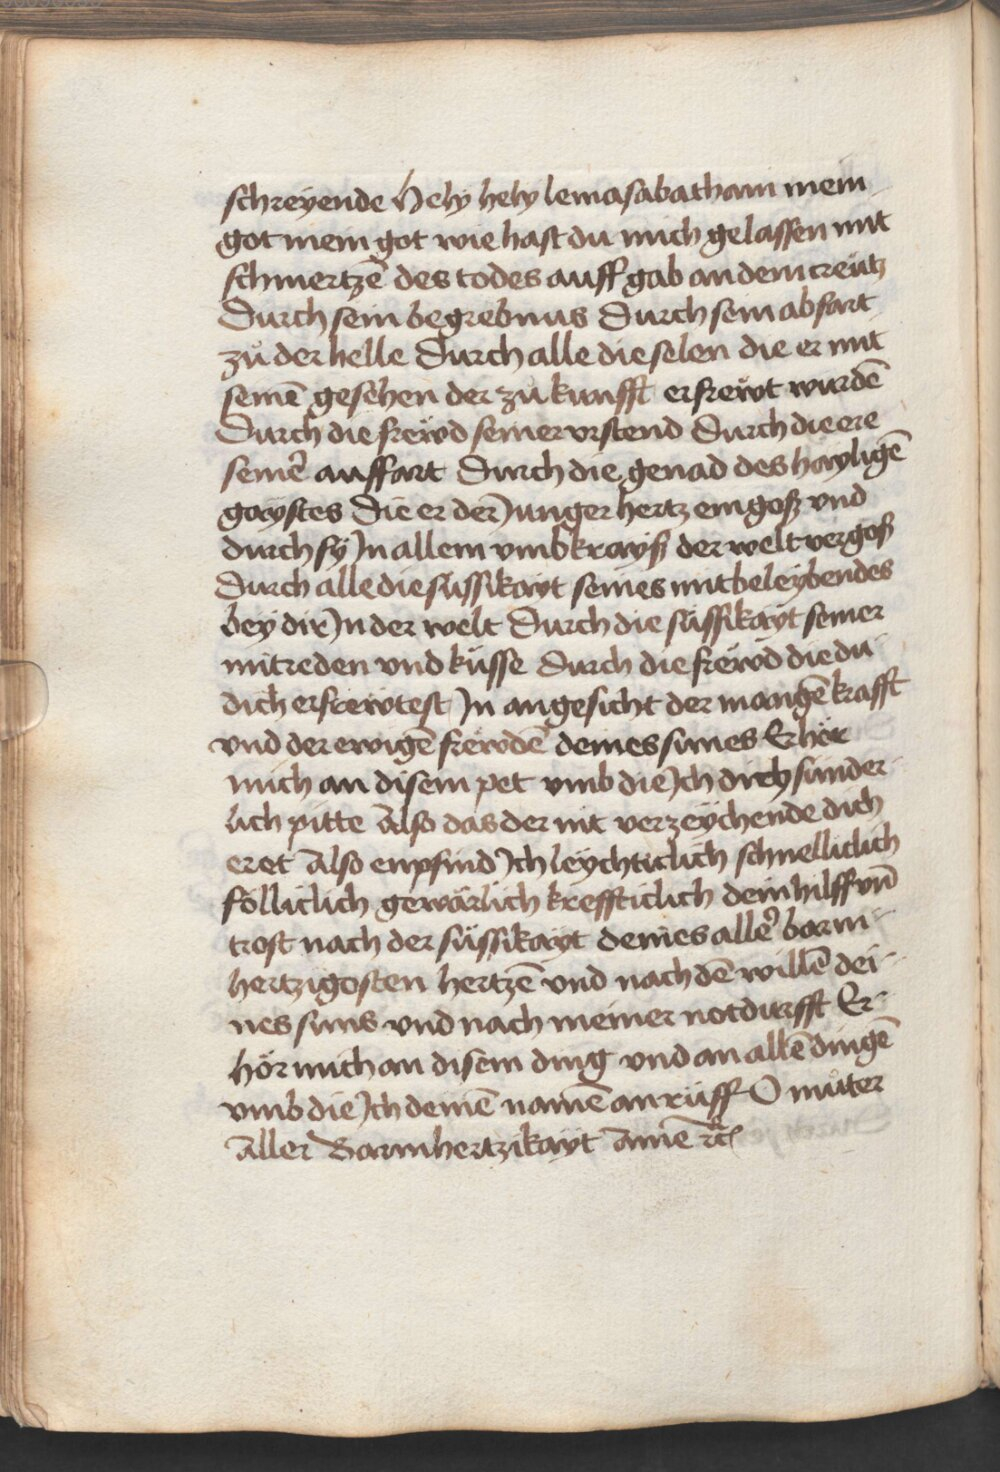 schreyende Hely hely lemasabathani mein
got mein got wie hast du mich gelassen mit
schmertzē des todes auff gab an dem creütz
Durch sein begrebnus Durch sein abfart
zů der helle Durch alle die selen die er mit
seinē gesehen der zůkunfft erfrewt wurdē
Durch die frewd seiner vrstend Durch die ere
seiner auffart Durch die genad des hayligē
gaystes Die er der Junger hertz eingosz vnd
durch sy Jn allem vmbkrayß der welt vergoß
Durch alle die süssikayt seines mitbeleybendes
bey dir Jn der welt Durch die süssikayt seiner
mitreden vnd küsse Durch die frewd die du
dich erfrewtest Jn angesicht der mangē krafft
vnd der ewigē frewdē deines sunes Erhör
mich an disem pet vmb die Jch dich sunder
lich pitte Also das der nit verzeychende dich
eret Also enpfind Jch leychticlich schnelliclich
fölliclich gewärlich kreffticlich dein hilff vñ
trost nach der süssikayt deines aller barm
hertzigosten hertzē vnd nach dē willē dei
nes suns vnd nach meiner notdurfft Er
hör mich an disem ding vnd an allē dingē
vmb die Jch deinē namē anrüff O můter
Aller Barmhertzikayt Amē ꝛc̄